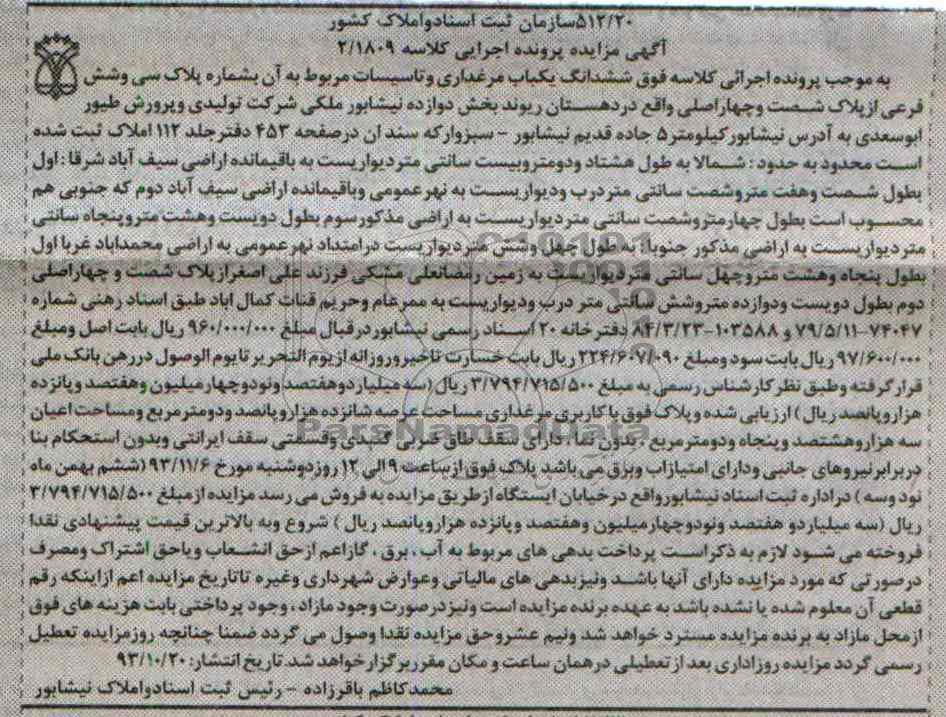 ۵۱۲/۲۰سازمان ثبت اسنادواملاک کشور
آگهی مزایده پرونده اجرایی کلاسه ۲/۱۸۰۹
به موجب پرونده اجرائی کلاسه فوق ششدانگ یکباب مرغداری وتاسیسات مربوط به آن بشماره پلاک سی وشش
فرعی ازپلاک شصت وچهاراصلی واقع دردهستان ریوند بخش دوازده نیشابور ملکی شرکت تولیدی وپرورش طیور
ابوسعدی به آدرس نیشابورکیلومتر۵ جاده قدیم نیشابور - سبزوارکه سند ان درصفحه ۴۵۳ دفترجلد ۱۱۲ املاک ثبت شده
است محدود به حدود : شمالا به طول هشتاد ودومتروبیست سانتی متردیواریست به باقیمانده اراضی سیف آباد شرقا : اول
بطول شصت وهفت متروشصت سانتی متردرب ودیواریست به نهرعمومی وباقیمانده اراضی سیف آباد دوم که جنوبی هم
محسوب است بطول چهارمتروشصت سانتی متردیواریست به اراضی مذکورسوم بطول دویست وهشت متروپنجاه سانتی
متردیواریست به اراضی مذکور جنوبا : به طول چهل وشش متردیواریست درامتداد نهرعمومی به اراضی محمداباد غربا اول
بطول پنجاه وهشت متروچهل سانتی متردیواریست به زمین رمضانعلی مشکی فرزند علی اصغرازپلاک شصت و چهاراصلی
دوم بطول دویست ودوازده متروشش سانتی متر درب ودیواریست به ممرعام وحریم قنات کمال اباد طبق اسناد رهنی شماره
۷۴۰۴۷-۷۹/۵/۱۱ و ۱۰۳۵۸۸-۸۴/۳/۲۳ دفترخانه ۲۰ اسناد رسمی نیشابوردرقبال مبلغ ۹۶۰/۰۰۰/۰۰۰ ریال بابت اصل ومبلغ
۹۷/۶۰۰/۰۰۰ ریال بابت سود ومبلغ ۲۲۴/۶۰۷/۰۹۰ ریال بابت خسارت تاخیروروزانه ازیوم التحریرتایوم الوصول دررهن بانک ملی
قرارگرفته وطبق نظرکارشناس رسمی به مبلغ ۳/۷۹۴/۷۱۵/۵۰۰ ریال (سه میلیاردوهفتصد ونودوچهارمیلیون وهفتصد وپانزده
هزاروپانصد ریال ) ارزیابی شده وپلاک فوق باکاربری مرغداری مساحت عرصه شانزده هزاروپانصد ودومترمربع ومساحت اعیان
سه هزاروهشتصد وپنجاه ودومترمربع ، بدون نما، دارای سقف طاق ضربی گنبدی وقسمتی سقف ایرانتی وبدون استحکام بنا
دربرابرنیروهای جانبی ودارای امتیازاب وبرق می باشد پلاک فوق ازساعت ۹ الی ۱۲ روزدوشنبه مورخ ۹۳/۱۱/۶(ششم بهمن ماه
نود وسه ) دراداره ثبت اسناد نیشابورواقع درخیابان ایستگاه ازطریق مزایده به فروش می رسد مزایده ازمبلغ ۳/۷۹۴/۷۱۵/۵۰۰
ریال (سه میلیاردو هفتصد ونودوچهارمیلیون وهفتصد وپانزده هزاروپانصد ریال ) شروع وبه بالاترین قیمت پیشنهادی نقدا
فروخته می شود لازم به ذکراست پرداخت بدهی های مربوط به آب ، برق ، گازاعم ازحق انشعاب ویاحق اشتراک ومصرف
درصورتی که مورد مزایده دارای آنها باشد ونیزبدهی های مالیاتی وعوارض شهرداری وغیره تاتاریخ مزایده اعم ازاینکه رقم
قطعی آن معلوم شده یا نشده باشد به عهده برنده مزایده است ونیزدرصورت وجود مازاد ، وجوه پرداختی بابت هزینه های فوق
ازمحل مازاد به برنده مزایده مسترد خواهد شد ونیم عشروحق مزایده نقدا وصول می گردد ضمنا چنانچه روزمزایده تعطیل
رسمی گردد مزایده روزاداری بعد ازتعطیلی درهمان ساعت و مکان مقرربرگزارخواهد شد.تاریخ انتشار: ۹۳/۱۰/۲۰
محمدکاظم باقرزاده - رئیس ثبت اسنادواملاک نیشابور
ParsNamadData